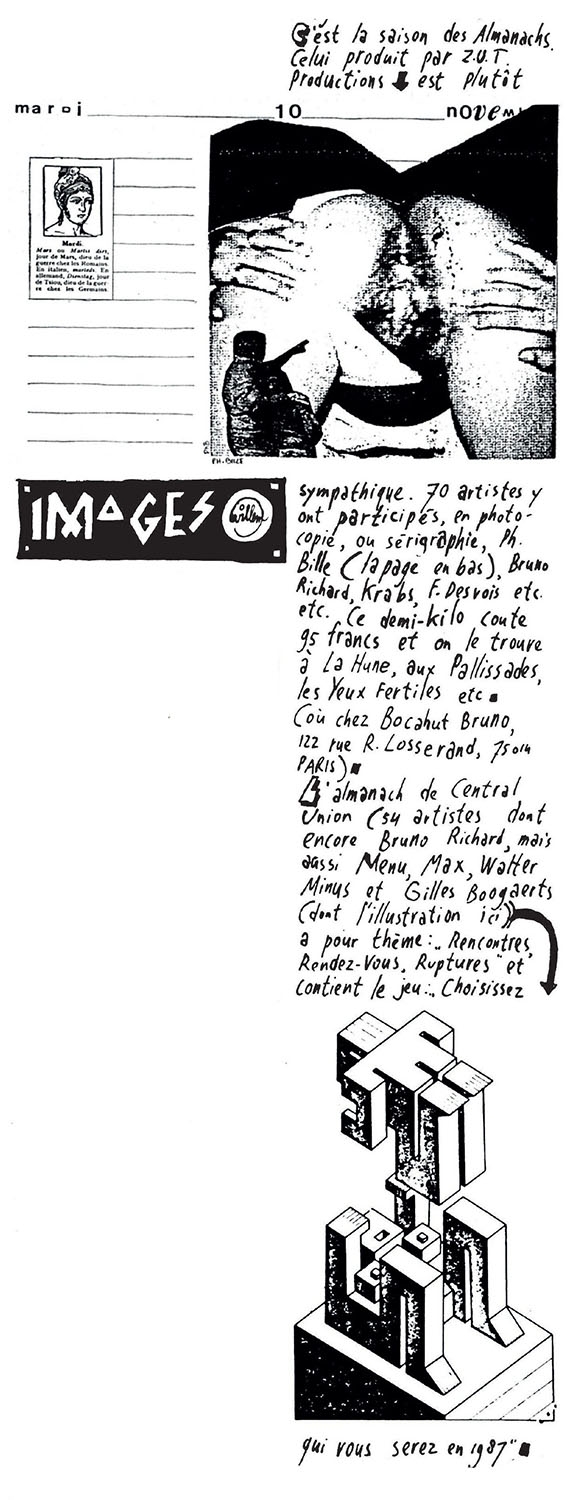 C'est la saison des Almanachs.
Celui produit par Z.U.T.
Productions est plutôt
mardi 10 novem
Mardi.
Mars ou Martis dies,
jour de Mars, dieu de la
guerre chez les Romains.
En italien, martedi. En
allemand, Dienstag, jour
de Tsiou, dieu de la guer-
re chez les Germains.
PH. BILLE
IMAGES Willem
sympathique. 70 artistes y
ont participés, en photo-
copie, ou sérigraphie, Ph.
Bille (la page en bas), Bruno
Richard, Krabs, F. Desvois etc.
etc. Ce demi-kilo coute
95 francs et on le trouve
à La Hune, aux Pallissades,
les Yeux Fertiles etc
(où chez Bocahut Bruno,
122 rue R. Losserand, 75014
PARIS)
L'almanach de Central
Union (54 artistes dont
encore Bruno Richard, mais
aussi Menu, Max, Walter
Minus et Gilles Boogaerts
(dont l'illustration ici)
a pour thème: „Rencontres,
Rendez-Vous, Ruptures" et
contient le jeu: „Choisissez
qui vous serez en 1987"